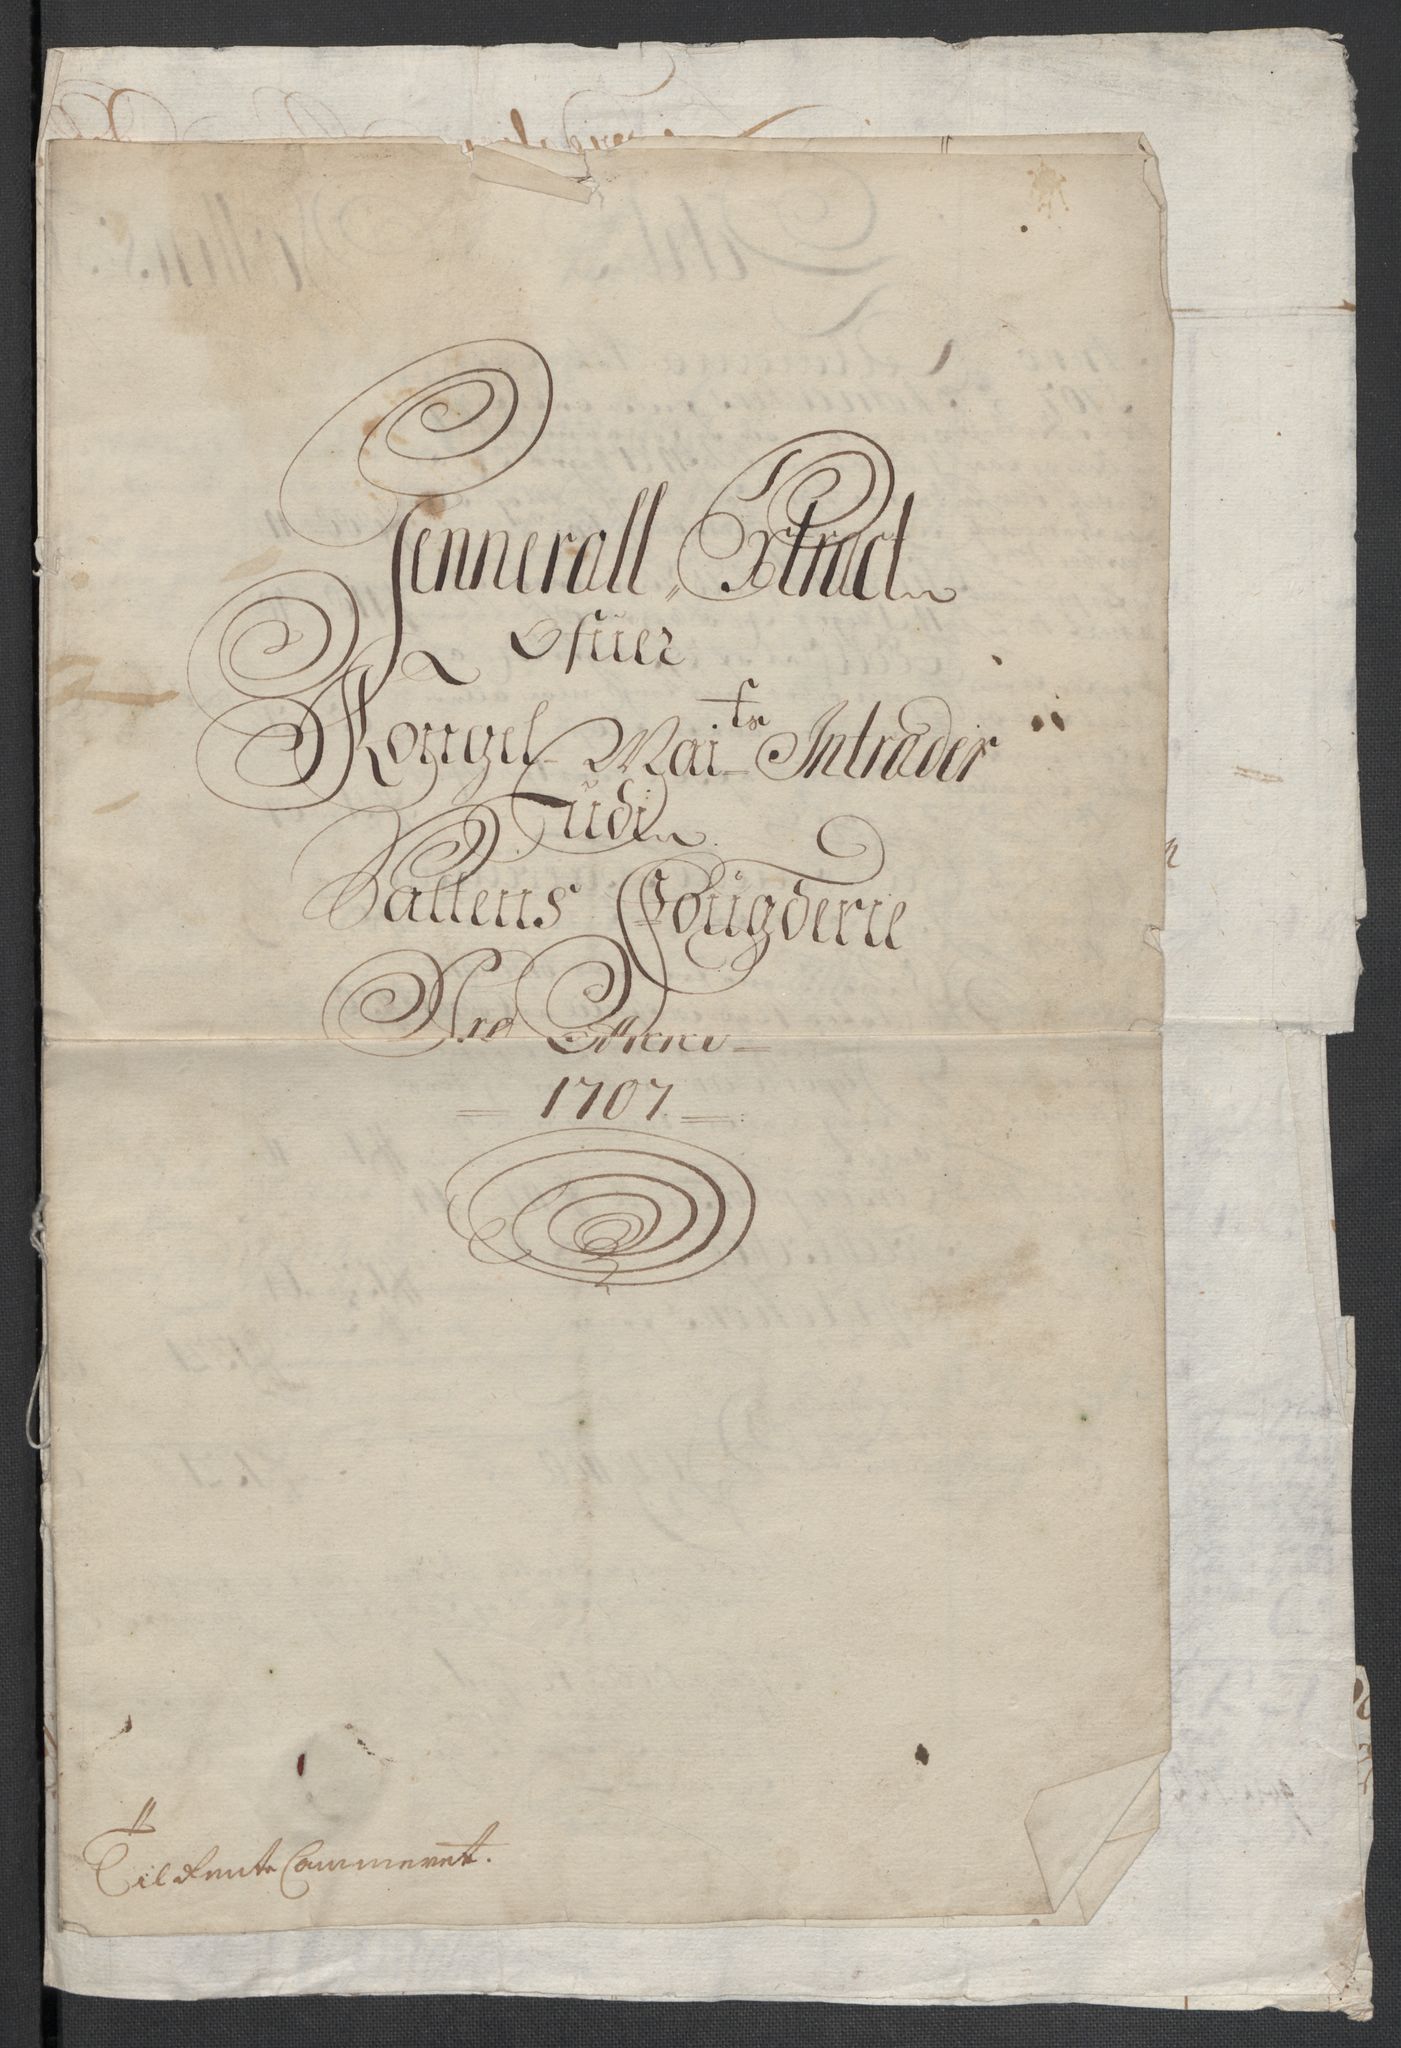 Gennerall Extract
Ofuer
Kongel Maits Intrader
udi
Saltens Fougderie
Pro Anno
1707
Til Rente Cammeret.